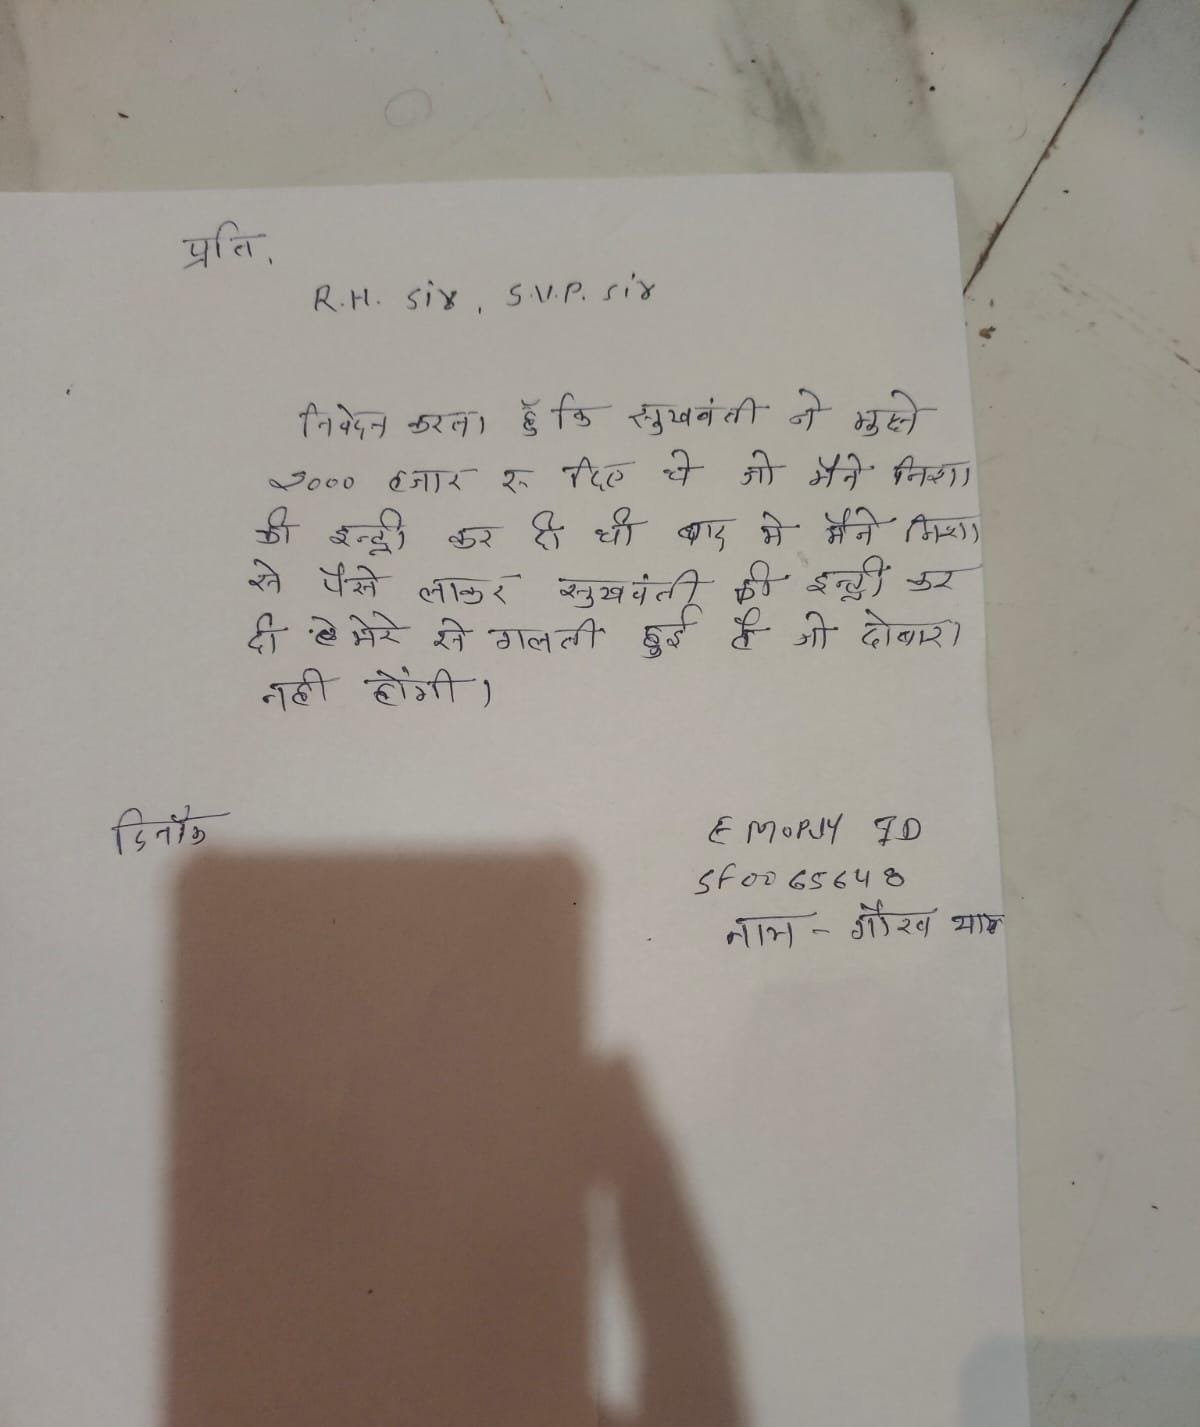 प्रति,
R.H. sir, S.V.P. sir
निवेदन करता हुँ कि सुखवंती ने मुझे
2000 हजार रु दिए थे जो मैने निशा
की इन्ट्री कर दी थी बाद मे मैने निशा
से पैसे लाकर सुखवंती की इन्ट्री कर
दी है मेरे से गलती हुई है जो दोबारा
नही होंगी।
दिनाँक
SF0065648
नाम - गौरव